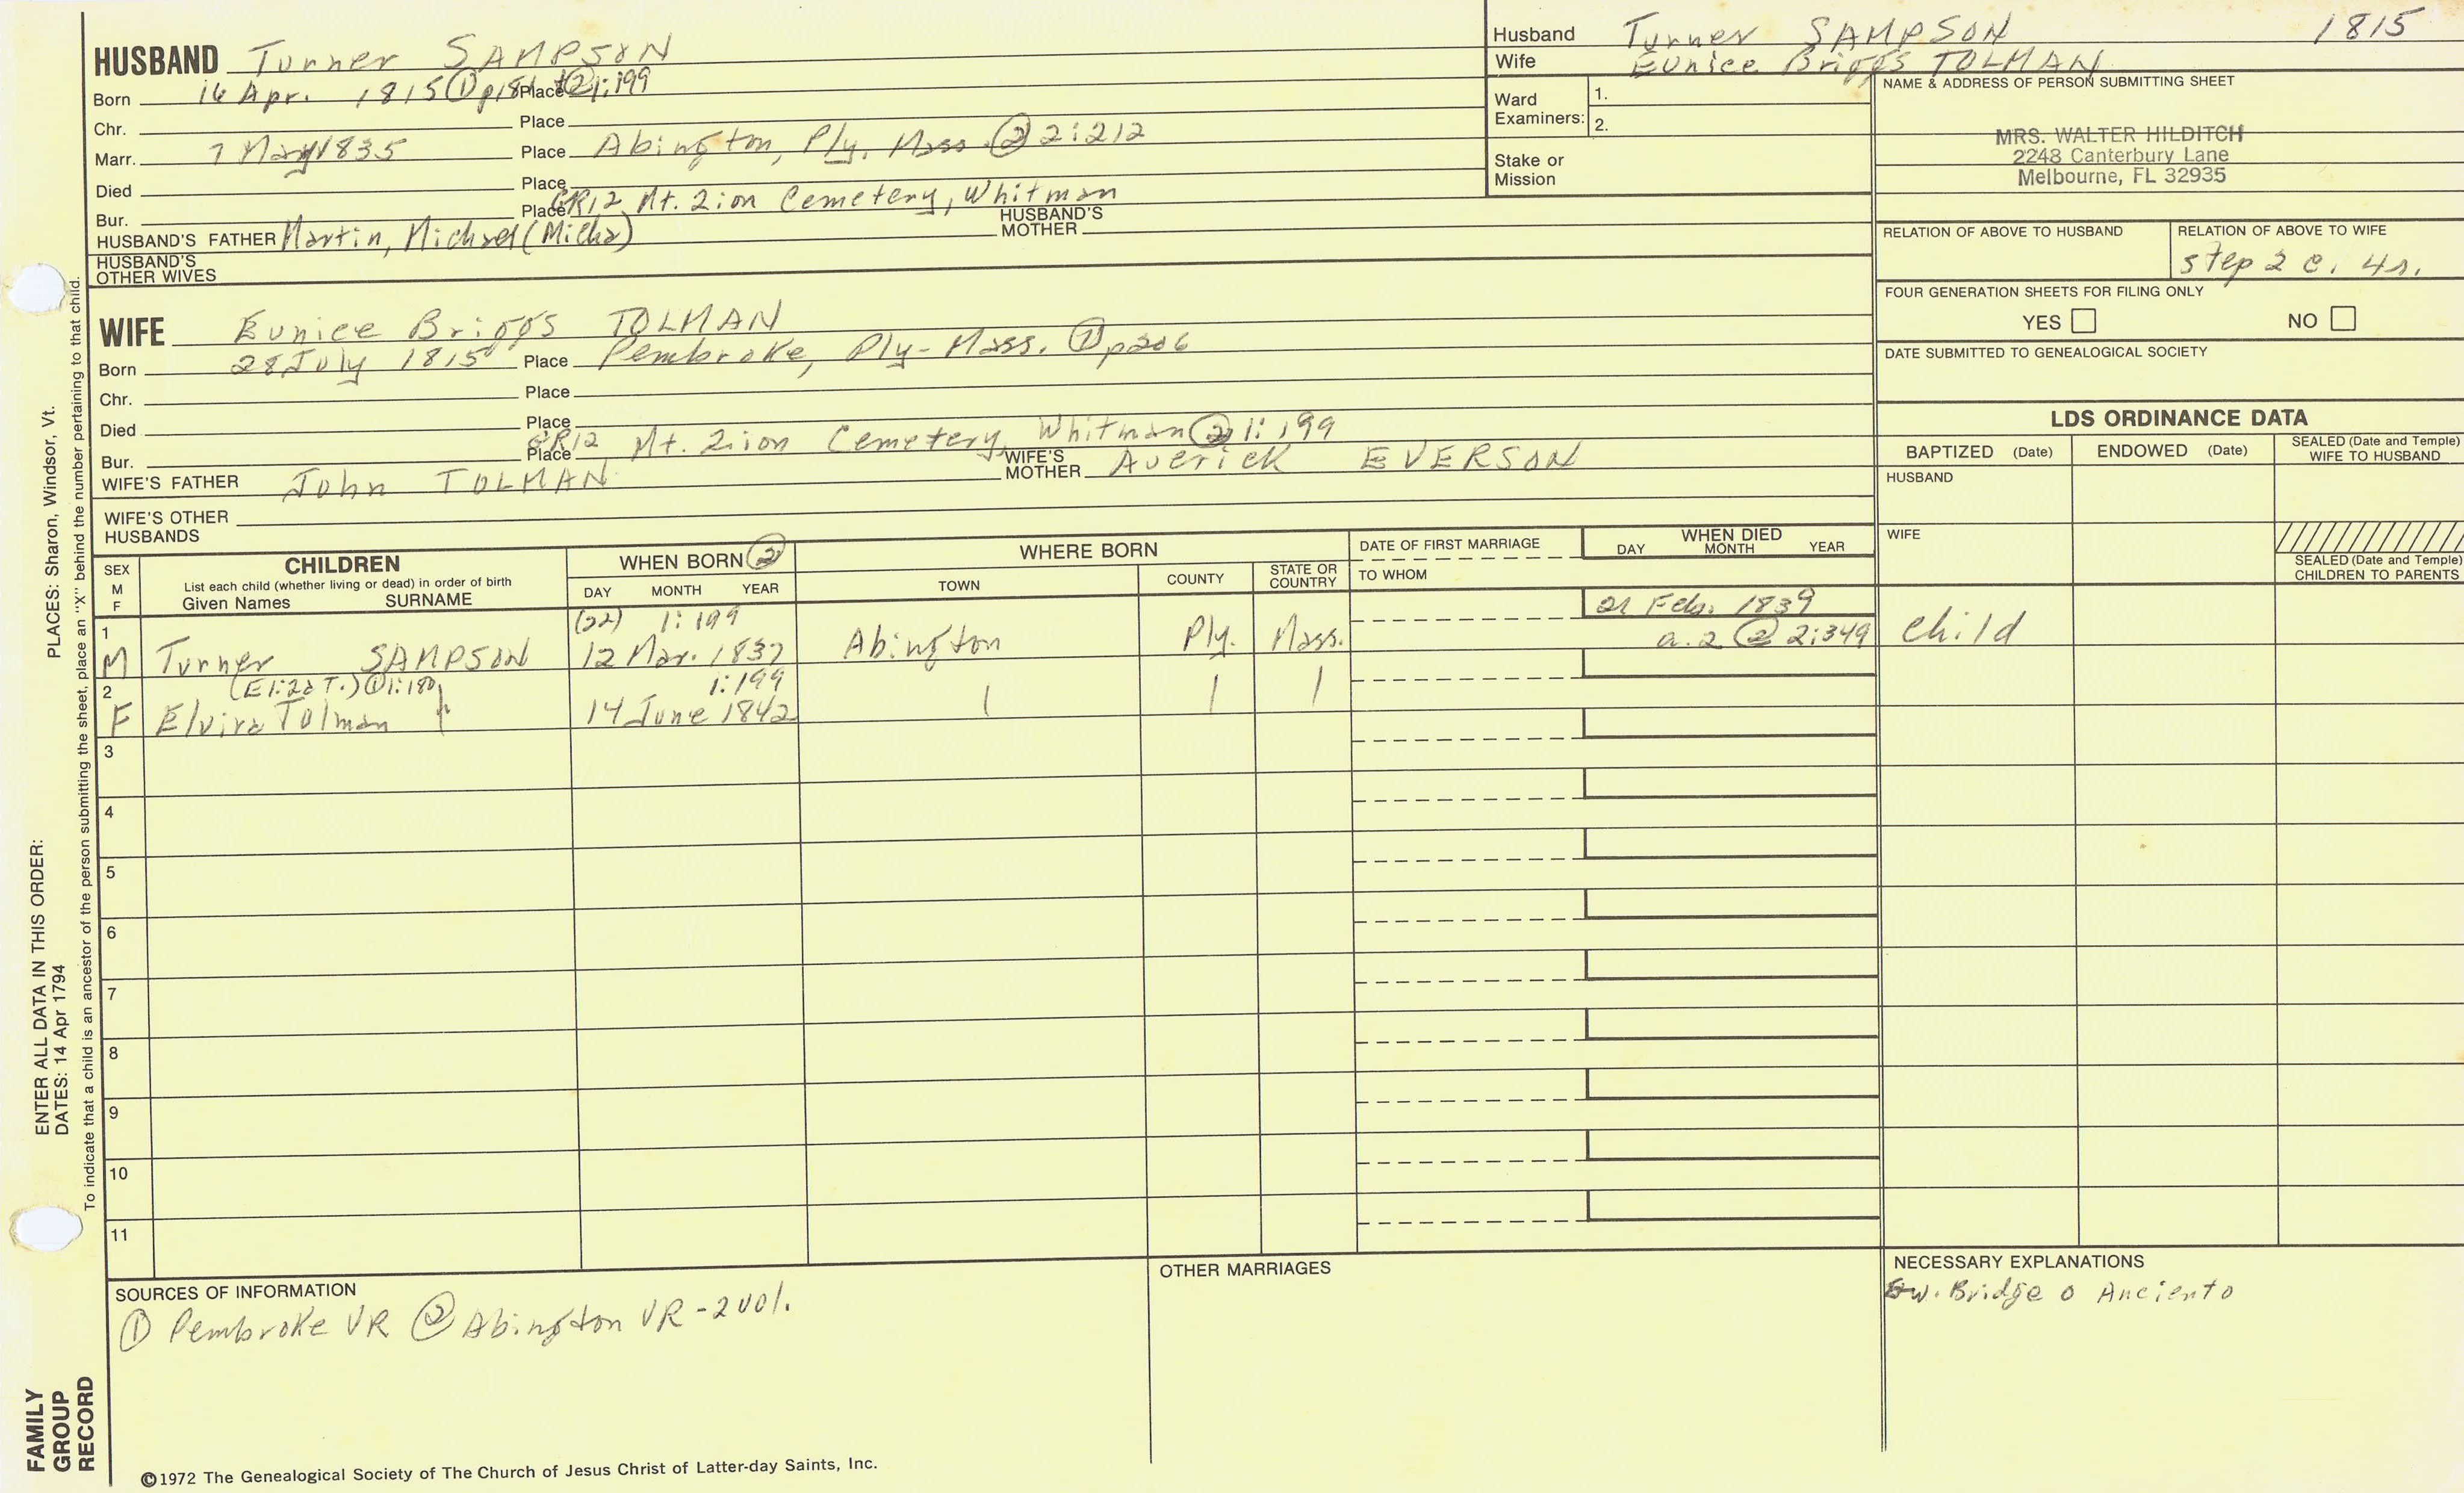 HUSBAND Turner SAMPSON
Born 16 Apr. 1815 ① p184 Place ② 1:199
Chr. Place
Marr. 7 May 1835 Place Abington, Ply. Mass. ② 2:212
Died Place
Bur. Place GR12 Mt. Zion Cemetery, Whitman
HUSBAND'S FATHER Martin, Michael (Micha) HUSBAND'S MOTHER
HUSBAND'S OTHER WIVES
WIFE Eunice Briggs TOLMAN
Born 28 July 1815 Place Pembroke, Ply-Mass. ① p206
Chr. Place
Died Place
Bur. Place GR12 Mt. Zion Cemetery, Whitman ② 1:199
WIFE'S FATHER John TOLMAN WIFE'S MOTHER Averick EVERSON
WIFE'S OTHER HUSBANDS
Husband Turner SAMPSON 1815
Wife Eunice Briggs TOLMAN
Ward Examiners: 1.
2.
Stake or Mission
NAME & ADDRESS OF PERSON SUBMITTING SHEET
MRS. WALTER HILDITCH
2248 Canterbury Lane
Melbourne, FL 32935
RELATION OF ABOVE TO HUSBAND RELATION OF ABOVE TO WIFE
step 2 c. 4r.
FOUR GENERATION SHEETS FOR FILING ONLY
YES NO
DATE SUBMITTED TO GENEALOGICAL SOCIETY
LDS ORDINANCE DATA
BAPTIZED (Date) ENDOWED (Date) SEALED (Date and Temple) WIFE TO HUSBAND
HUSBAND
WIFE
SEALED (Date and Temple) CHILDREN TO PARENTS
SEX M F
CHILDREN
List each child (whether living or dead) in order of birth
Given Names SURNAME
WHEN BORN ②
DAY MONTH YEAR
WHERE BORN
TOWN COUNTY STATE OR COUNTRY
DATE OF FIRST MARRIAGE
TO WHOM
WHEN DIED
DAY MONTH YEAR
(22) 1:199 21 Feb. 1839
1 M Turner SAMPSON 12 Mar. 1837 Abington Ply. Mass. a. 2 ② 2:349 child
(Eliza T.) ① 1:180 1:199
2 F Elvira Tolman " 14 June 1842 | | |
3
4
5
6
7
8
9
10
11
SOURCES OF INFORMATION
① Pembroke VR ② Abington VR - 2 vol.
OTHER MARRIAGES
NECESSARY EXPLANATIONS
w. Bridge o Anciento
©1972 The Genealogical Society of The Church of Jesus Christ of Latter-day Saints, Inc.
FAMILY GROUP RECORD
ENTER ALL DATA IN THIS ORDER:
DATES: 14 Apr 1794
PLACES: Sharon, Windsor, Vt.
To indicate that a child is an ancestor of the person submitting the sheet, place an "X" behind the number pertaining to that child.